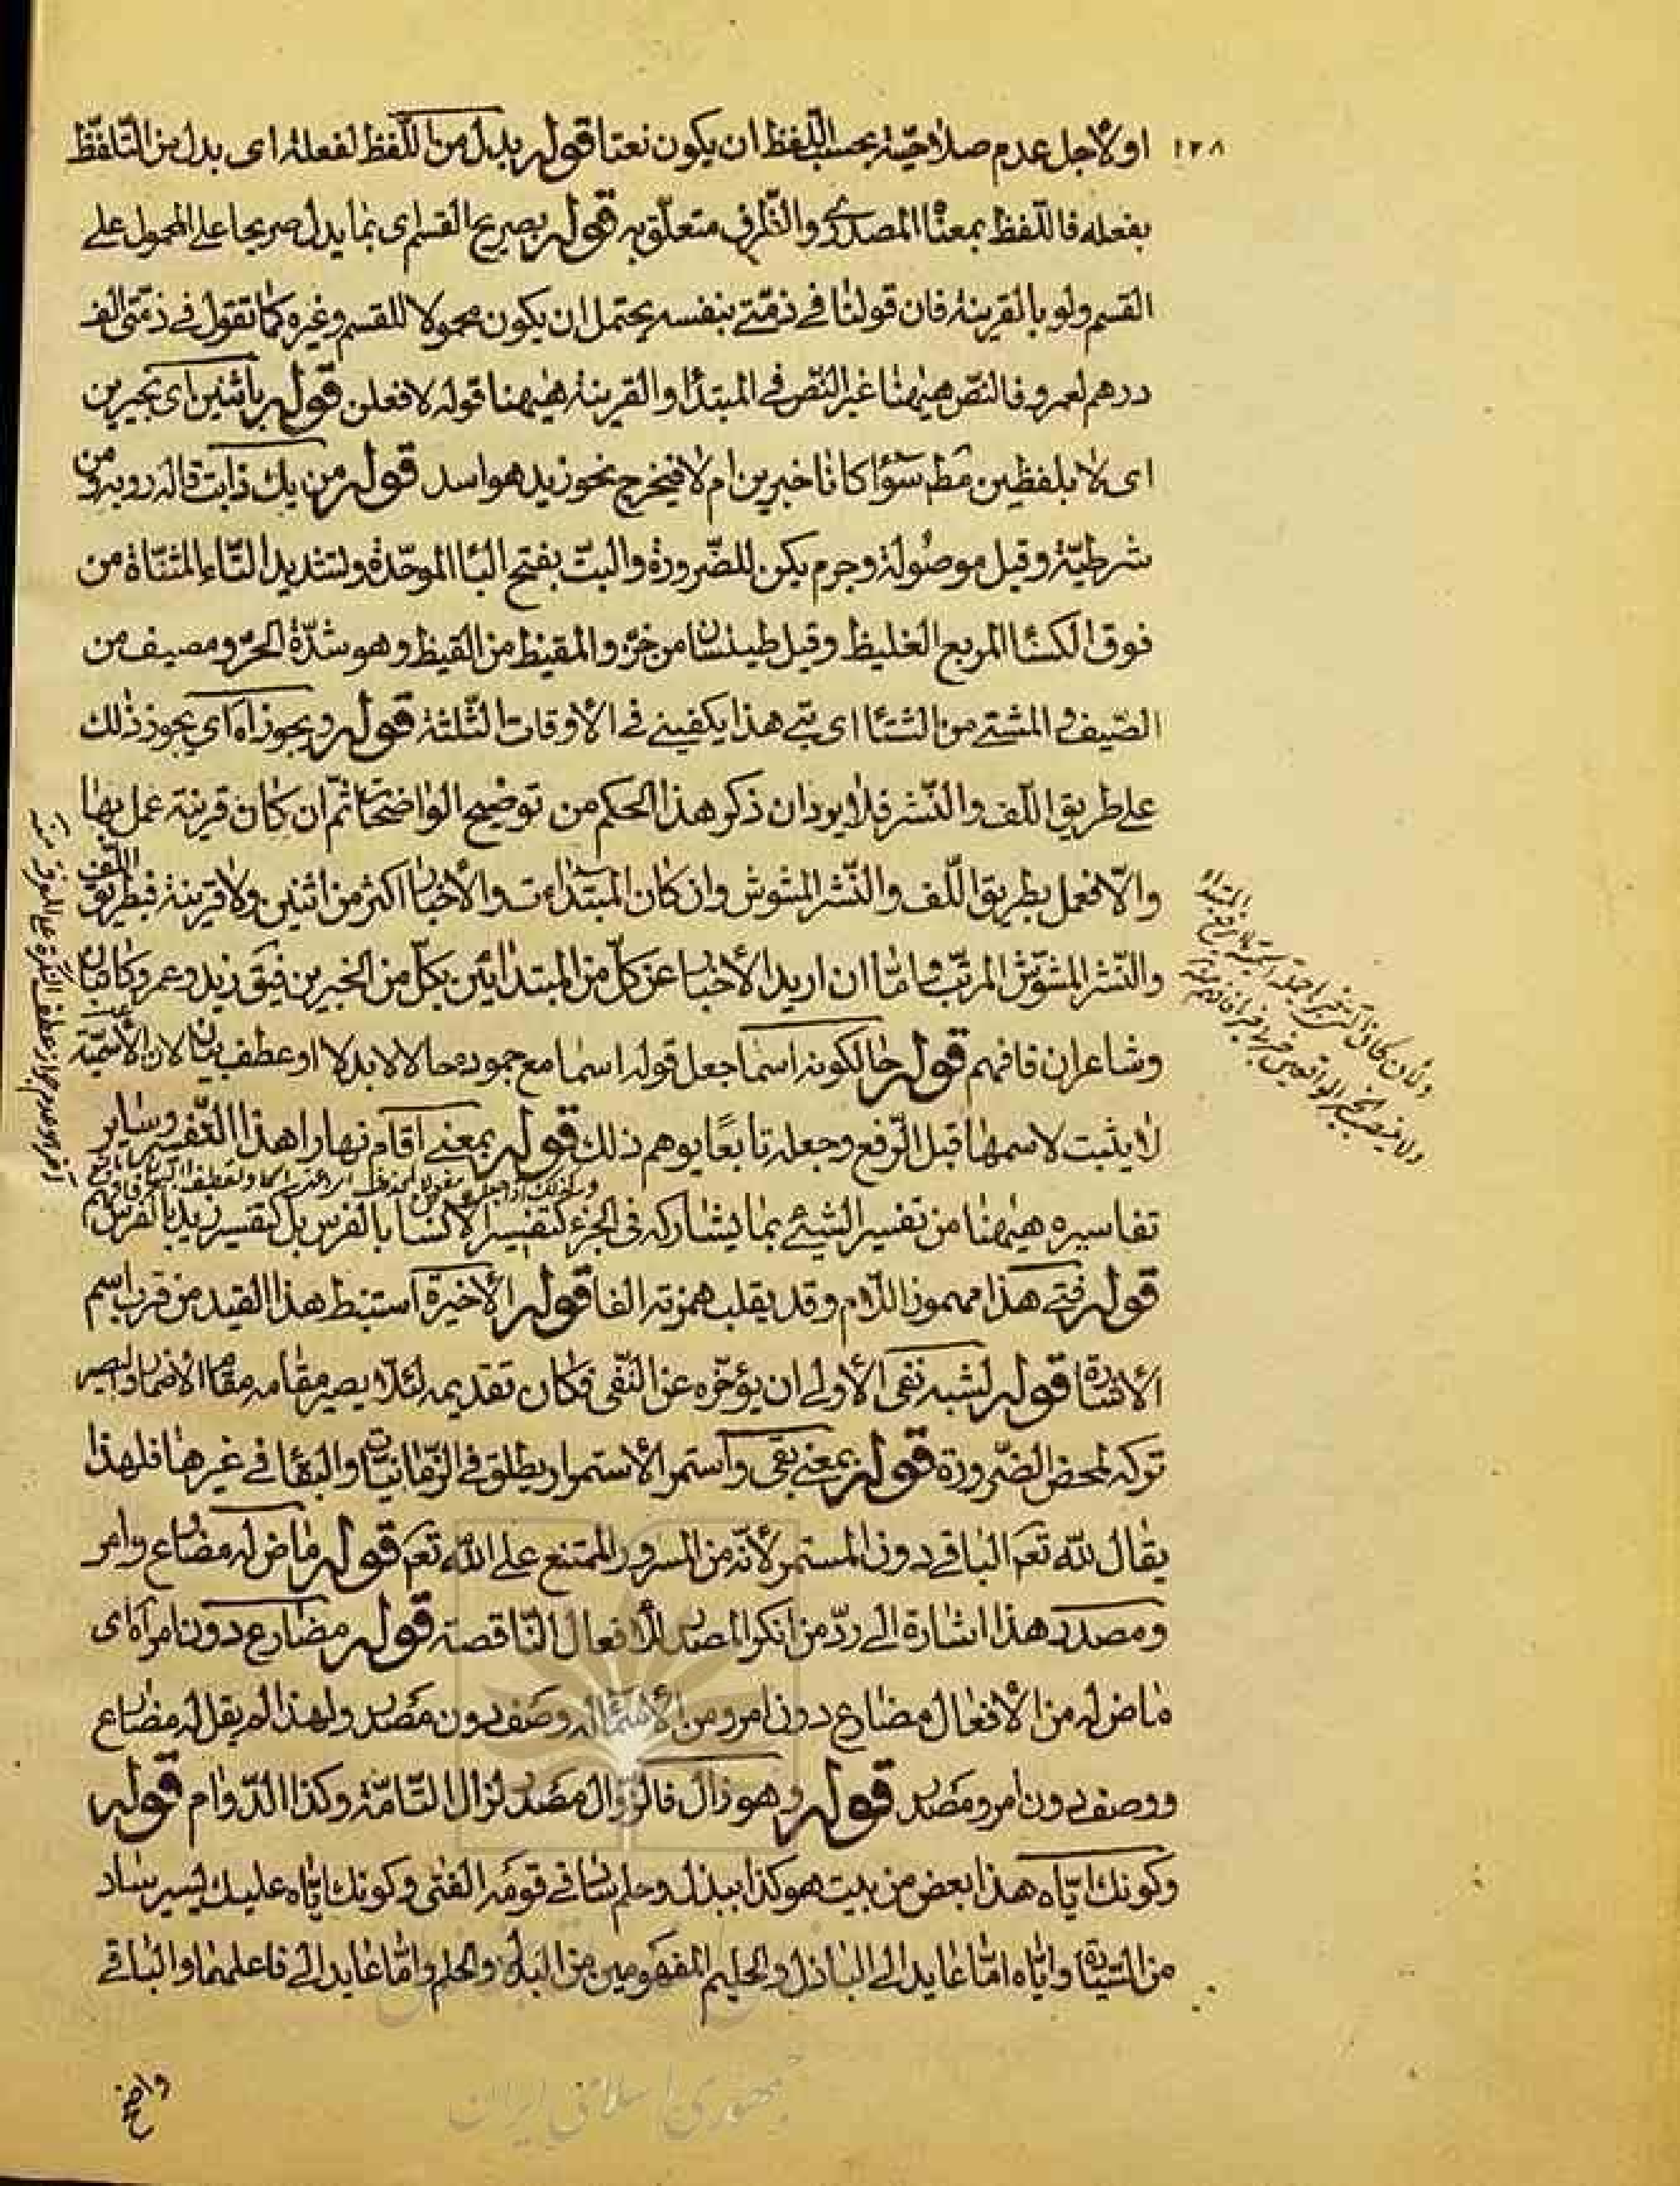 ١٢٨
او لاجل عدم صلاحيته بحسب اللفظ ان يكون نعتا قوله بدل من اللفظ لفعله اى بدل من التلفظ
بفعله فاللفظ بمعناه المصدرى والظرف متعلق به قوله بصريح القسم اى بما يدل صريحا على المحمول على
القسم ولو بالقرينة فان قولنا فى ذمتى بنفسه يحتمل ان يكون محمولا للقسم وغيره كما تقول فى ذمتى الف
درهم لعمرو فالنص هيهنا غير النص فى المبتدأ والقرينة هيهنا قوله لافعلن قوله باثنين اى بخبرين
اى لا بلفظين فقط سواء كانا خبرين ام لا فيخرج نحو زيد هو اسد قوله من يك ذابت قاله روبة ومن
شرطيّة وقيل موصولة وجزم يكن للضّرورة والبتّ بفتح الباء الموحّدة وتشديد التّاء المثنّاة من
فوق الكساء المربع الغليظ وقيل طيلسان من خزّ والمقيظ من القيظ وهو شدّة الحرّ ومصيف من
الصّيف والمشتى من الشتاء اى بتى هذا يكفينى فى الأوقات الثّلثة قوله ويجوز اه اى يجوز ذلك
على طريق اللّف والنّشر فلا يرد ان ذكر هذا الحكم من توضيح الواضحات ثمّ ان كان قرينة عمل بها
والّا فعمل بطريق اللّف والنّشر المشوش وان كان المبتداءت والأخبار اكثر من اثنين ولا قرينة فبطريق اللف
والنّشر المشوّش المرتّب وامّا ان اريد الأخبار عن كلّ من المبتدائين بكلّ من الخبرين فيق زيد وعمرو كاتبان
وشاعران فافهم قوله حال كونه اسما جعل قوله اسما مع جموده حالا لا بدلا او عطف بيان لان الأسميّة
لا يثبت لاسمها قبل الرّفع وجعله تابعًا يوهم ذلك قوله بمعنى اقام نهارا هذا التّفسير وساير
تفاسيره هيهنا من تفسير الشيئ بما يشاركه فى الجزء كتفسير الانسان بالفرس بل كتفسير زيد بالفرس
قوله فتى هذا مهموز اللّام وقد يقلب همزته الفا قوله الأخيرة استنبط هذا القيد من قرب اسم
الاشارة قوله لشبه نفى الأولى ان يؤخّره عن النّفى فكان تقديمه لئلّا يصير مقامه مقام الأضمار وليصير
تركه لمحض الضّرورة قوله بمعنى بقى واستمر الأستمرار يطلق فى الزّمانيّات والبقاء فى غيرها فلهذا
يقال للّه تعم الباقى دون المستمر لأنّه من المرور الممتنع على اللّه تعم قوله ماض له مضارع وامر
ومصدر هذا اشارة الى ردّ من انكر المصدر للأفعال النّاقصة قوله مضارع دون امر اه اى
ماض له من الافعال مضارع دون امر ومن الأسماء له وصف دون مصدر ولهذا لم يقل له مضارع
ووصف دون امر ومصدر قوله وهو زال فالزّوال مصدر لزال التّامّة وكذا الدّوام قوله
وكونك ايّاه هذا بعض من بيت هو كذا ببذل وحلم ساد فى قومه الفتى وكونك ايّاه عليك يسير ساد
من السّيادة وايّاه امّا عايد الى الباذل والحليم المفهومين من البذل والحلم وامّا عايد الى فاعلهما والباقى
واضح